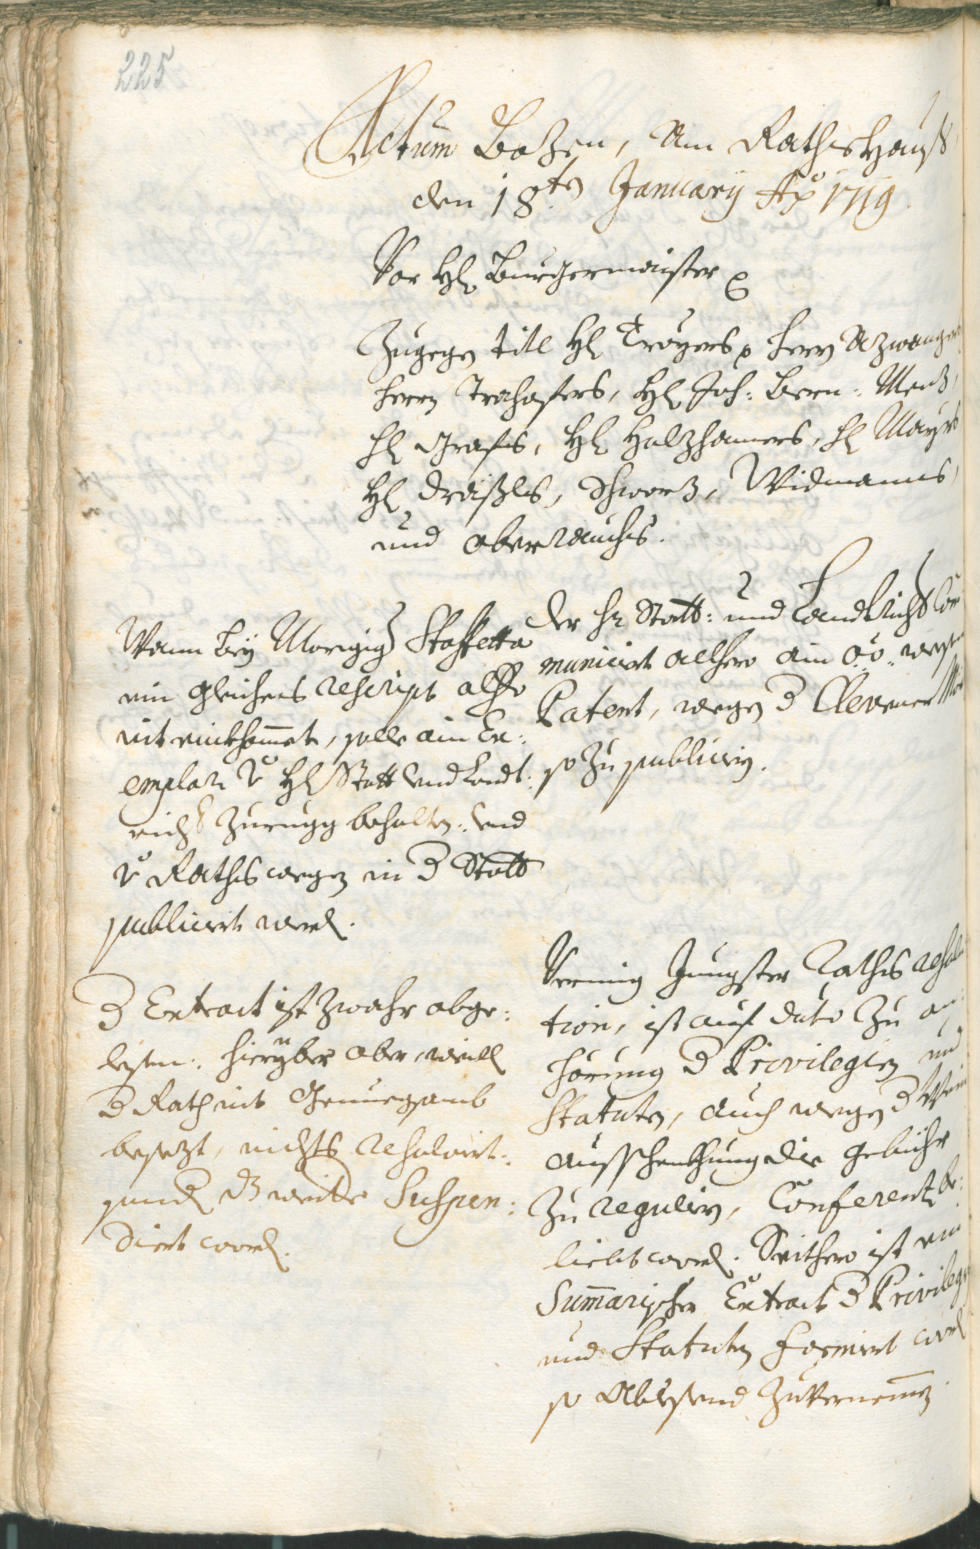 225
Actum Bozen, Am Rathshauß
den 18.ten January Ao 1719.
Vor Hl Burgermaister
Zugegen titl Hl Troyers, herrn Azwanger
herrn Trahasters, Hl Joh: Bern: Menz,
Hl Grafs, Hl Holzhamers, Hl Mayrs
Hl Schwarz, Widmanns,
und oberrauchs.
Der Hr Statt: und Landrichter Com
municirt alhero ain
Patent, wegen d
so zu publiciern.
Wann bey Morigiger Staffetta
ein gleiches rescript alhero
nit einkhommet, solle ain Ex:
emplar v Hl Statt und Landt:
richter zurugg behalten: und
v Raths wegen in d Statt
publiciert werden.
Vermüg Jüngster Raths resolu
tion, ist auf dato zu an
hörung d Privilegien und
Statuten, auch wegen d Wein
ausschenkhung die gebühr
zu regulirn, Conferenz be:
liebt worden. Seithero ist ein
Summarischer Extract d Privilegien
und Statuten formirt worden
so ablesend zuvernemmen.
D Extract ist zwahr abge:
lesen: hierüber aber, weill
d Rath nit genuegsamb
besezt, nichts resolvirt:
sonder dz weitere Suspen:
diert worden.